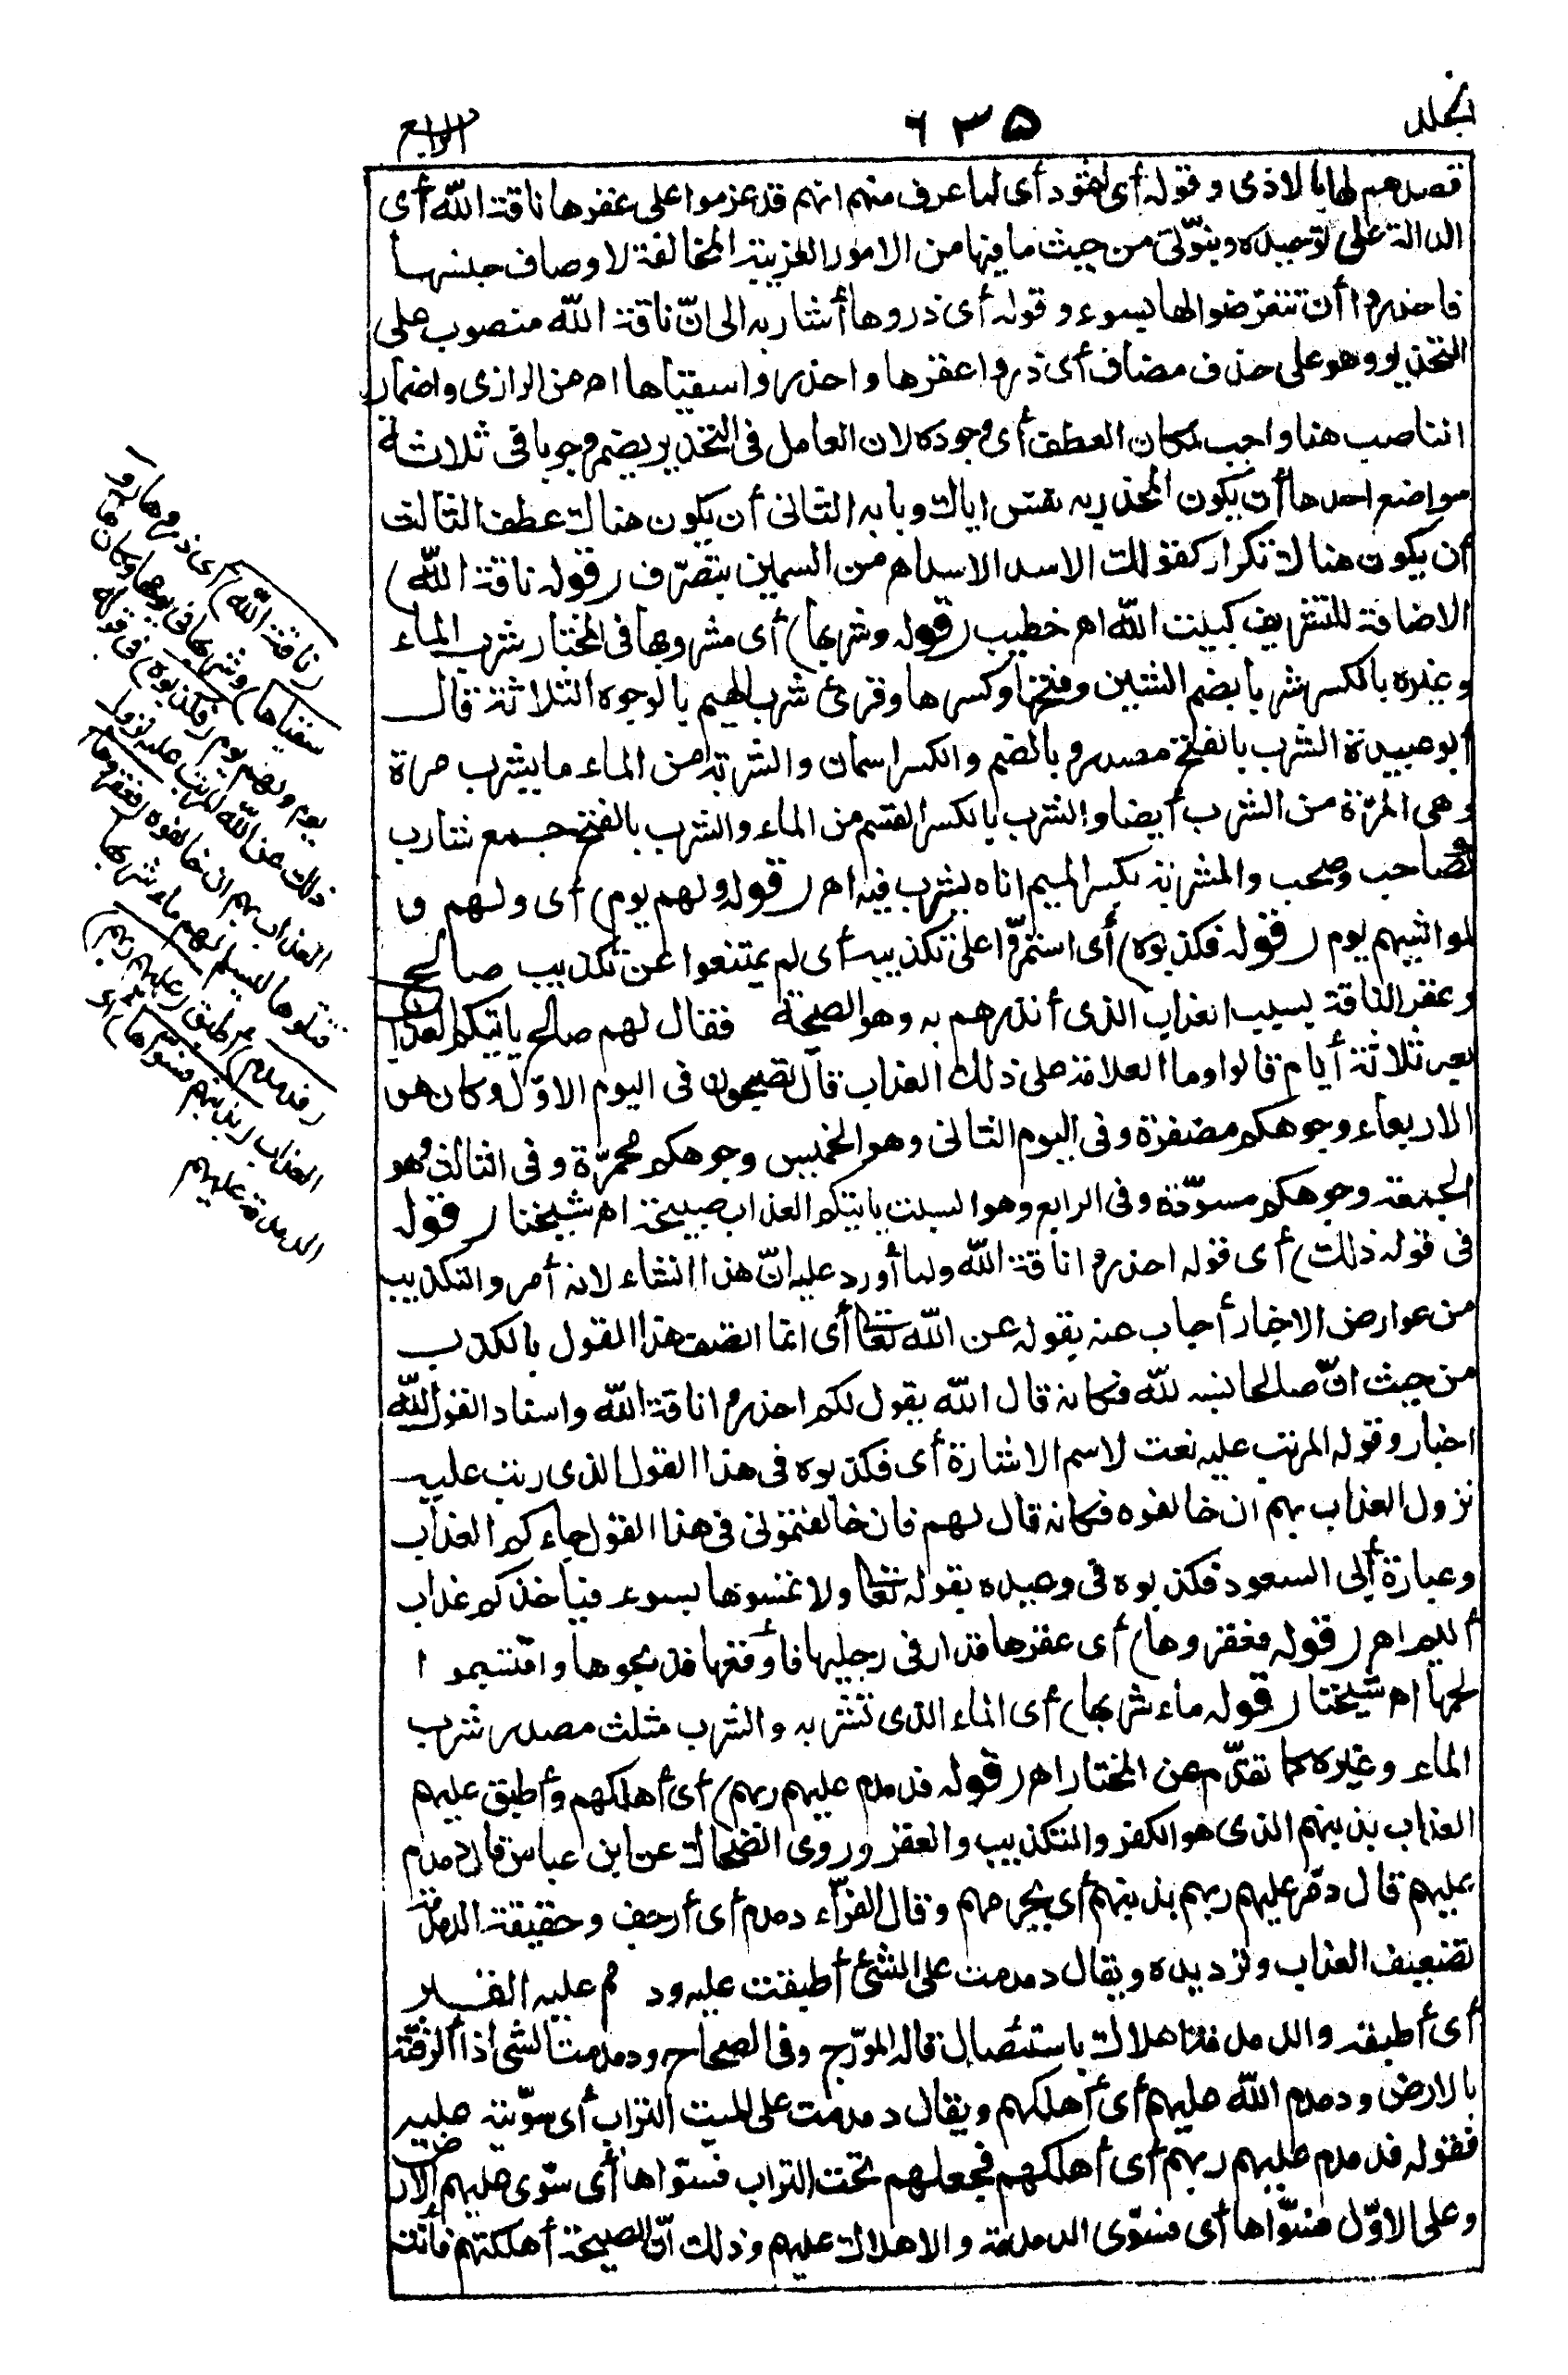 مجلد
٦٣٥
الرابع
قصدهم لها بالاذى وقوله أى لثمود أى لما عرف منهم انهم قد عزموا على عقرها ناقة الله أى
الدالة على توحيده ونبوّتى من حيث ما فيها من الامور الغريبة المخالفة لاوصاف جنسها
فاحذروا أن تتعرّضوا لها بسوء وقوله أى ذروها أشار به الى انّ ناقة الله منصوب على
التحذير وهو على حذف مضاف أى ذروا عقرها واحذروا سقياها اهـ من الرازى واضمار
الناصب هنا واجب لمكان العطف أى وجوده لان العامل فى التحذير يضمر وجوبا فى ثلاثة
مواضع احدها أن يكون المحذر به نفس اياك وبابه الثانى أن يكون هناك عطف الثالث
أن يكون هناك تكرار كقولك الاسد الاسد اهـ من السمين بتصرّف (قوله ناقة الله)
الاضافة للتشريف كبيت الله اهـ خطيب (قوله وشربها) أى مشروبها فى المختار شرب الماء
وغيره بالكسر شربا بضم الشين وفتحها وكسرها وقرئ شرب الهيم بالوجوه الثلاثة قال
أبو عبيدة الشرب بالفتح مصدر وبالضم والكسر اسمان والشربة من الماء ما يشرب مرة
وهى المرّة من الشرب أيضا والشرب بالكسر القسم من الماء والشرب بالفتح جمع شارب
كصاحب وصحب والمشربة بكسر الميم اناء يشرب فيه اهـ (قوله ولهم يوم) أى ولهم و
لمواشيهم يوم (قوله فكذبوه) أى استمرّوا على تكذيبه أى لم يمتنعوا عن تكذيب صالح
وعقر الناقة بسبب العذاب الذى أنذرهم به وهو الصيحة فقال لهم صالح يأتيكم العذاب
بعد ثلاثة أيام قالوا وما العلامة على ذلك العذاب قال تصبحون فى اليوم الاوّل وكان هو
الاربعاء وجوهكم مصفرة وفى اليوم الثانى وهو الخميس وجوهكم محمرّة وفى الثالث وهو
الجمعة وجوهكم مسودّة وفى الرابع وهو السبت يأتيكم العذاب صبيحته اهـ شيخنا (قوله
فى قوله ذلك) أى قوله احذروا ناقة الله ولما أورد عليه انّ هذا انشاء لانه أمر والتكذيب
من عوارض الاخبار أجاب عنه بقوله عن الله تعالى أى انما اتصف هذا المقول بالكذب
من حيث انّ صالحا نسبه لله فكانه قال الله يقول لكم احذروا ناقة الله واسناد القول لله
اخبار وقوله المرتب عليه نعت لاسم الاشارة أى فكذبوه فى هذا القول الذى رتب عليه
نزول العذاب بهم ان خالفوه فكانه قال لهم فان خالفتمونى فى هذا القول جاءكم العذاب
وعبارة أبى السعود فكذبوه فى وعيده بقوله تعالى ولا تمسوها بسوء فيأخذكم عذاب
أليم اهـ (قوله فعقروها) أى عقرها قدار فى رجليها فأوقعها فذبحوها واقتسموا
لحمها اهـ شيخنا (قوله ماء شربها) أى الماء الذى تشربه والشرب مثلث مصدر شرب
الماء وغيره كما تقدّم عن المختار اهـ (قوله فدمدم عليهم ربهم) أى أهلكهم وأطبق عليهم
العذاب بذنبهم الذى هو الكفر والتكذيب والعقر وروى الضحاك عن ابن عباس قال دمدم
عليهم قال دمّر عليهم ربهم بذنبهم أى بجرمهم وقال الفرّاء دمدم أى أرجف وحقيقة الدمدمة
تضعيف العذاب وترديده ويقال دمدمت على الشئ أطبقت عليه ود مم عليه القبر
أى أطبقه والدمدمة اهلاك باستئصال قاله المؤرّج وفى الصحاح ودمدمت الشئ اذا ألزقته
بالارض ودمدم الله عليهم أى أهلكهم ويقال دمدمت على الميت التراب أى سوّيته عليه
فقوله فدمدم عليهم ربهم أى أهلكهم فجعلهم تحت التراب فسوّاها أى سوّى عليهم الارض
وعلى الاوّل فسوّاها أى فسوّى الدمدمة والاهلاك عليهم وذلك أنّ الصيحة أهلكتهم فأتت
(ناقة الله) أى ذروها (و
سقياها) وشربها فى يومها وكان لها
يوم ولهم يوم (فكذبوه) فى قوله
ذلك عن الله المرتب عليه نزول
العذاب بهم ان خالفوه (فعقروها)
قتلوها ليسلم لهم ماء شربها
(فدمدم) أطبق (عليهم ربهم)
العذاب (بذنبهم فسواها) أى
الدمدمة عليهم